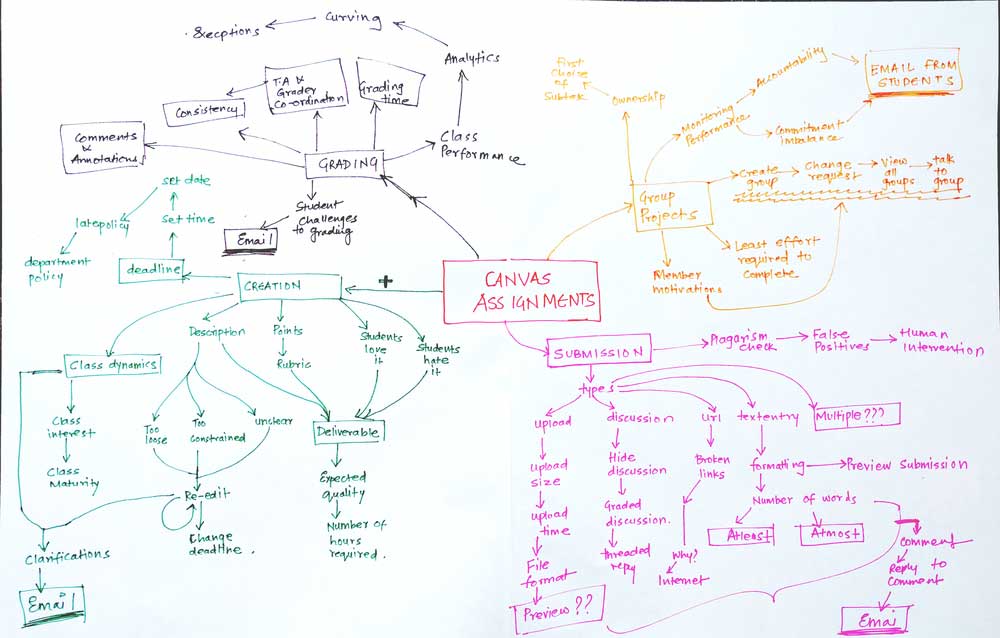 &ecptions
curving
Analytics
TA &
Grader
Co-ordination
Grading
time
Consistency
Comments
&
Annotations
Class
Performance
GRADING
Student
challenges
to grading
Email
set date
Set time
latepolicy
department
policy
deadline
CREATION
+
CANVAS
ASSIGNMENTS
First
Choice
of
Subtask
Ownership
Monitoring
Performance
Accountability
EMAIL FROM
STUDENTS
Commitment
imbalance
Group
Projects
Create
group
Change
request
View
all
groups
talk
to
group
Least effort
required to
complete
Member
motivations
Description
Points
Rubric
Students
love
it
Students
hate
it
Class dynamics
Class
interest
Class
Maturity
Too
loose
Too
constrained
unclear
Deliverable
Expected
quality
Number of
hours
required.
Re-edit
Change
deadline.
Clarifications
Email
SUBMISSION
Plagarism
check
False
Positives
Human
Intervention
types
upload
discussion
url
textentry
Multiple???
upload
size
upload
time
File
format
Preview??
Hide
discussion
Graded
discussion.
threaded
repy
Broken
links
Why?
Internet
formatting
Preview Submission
Number of words
Atleast
Atmost
Comment
Reply to
Comment
Emai